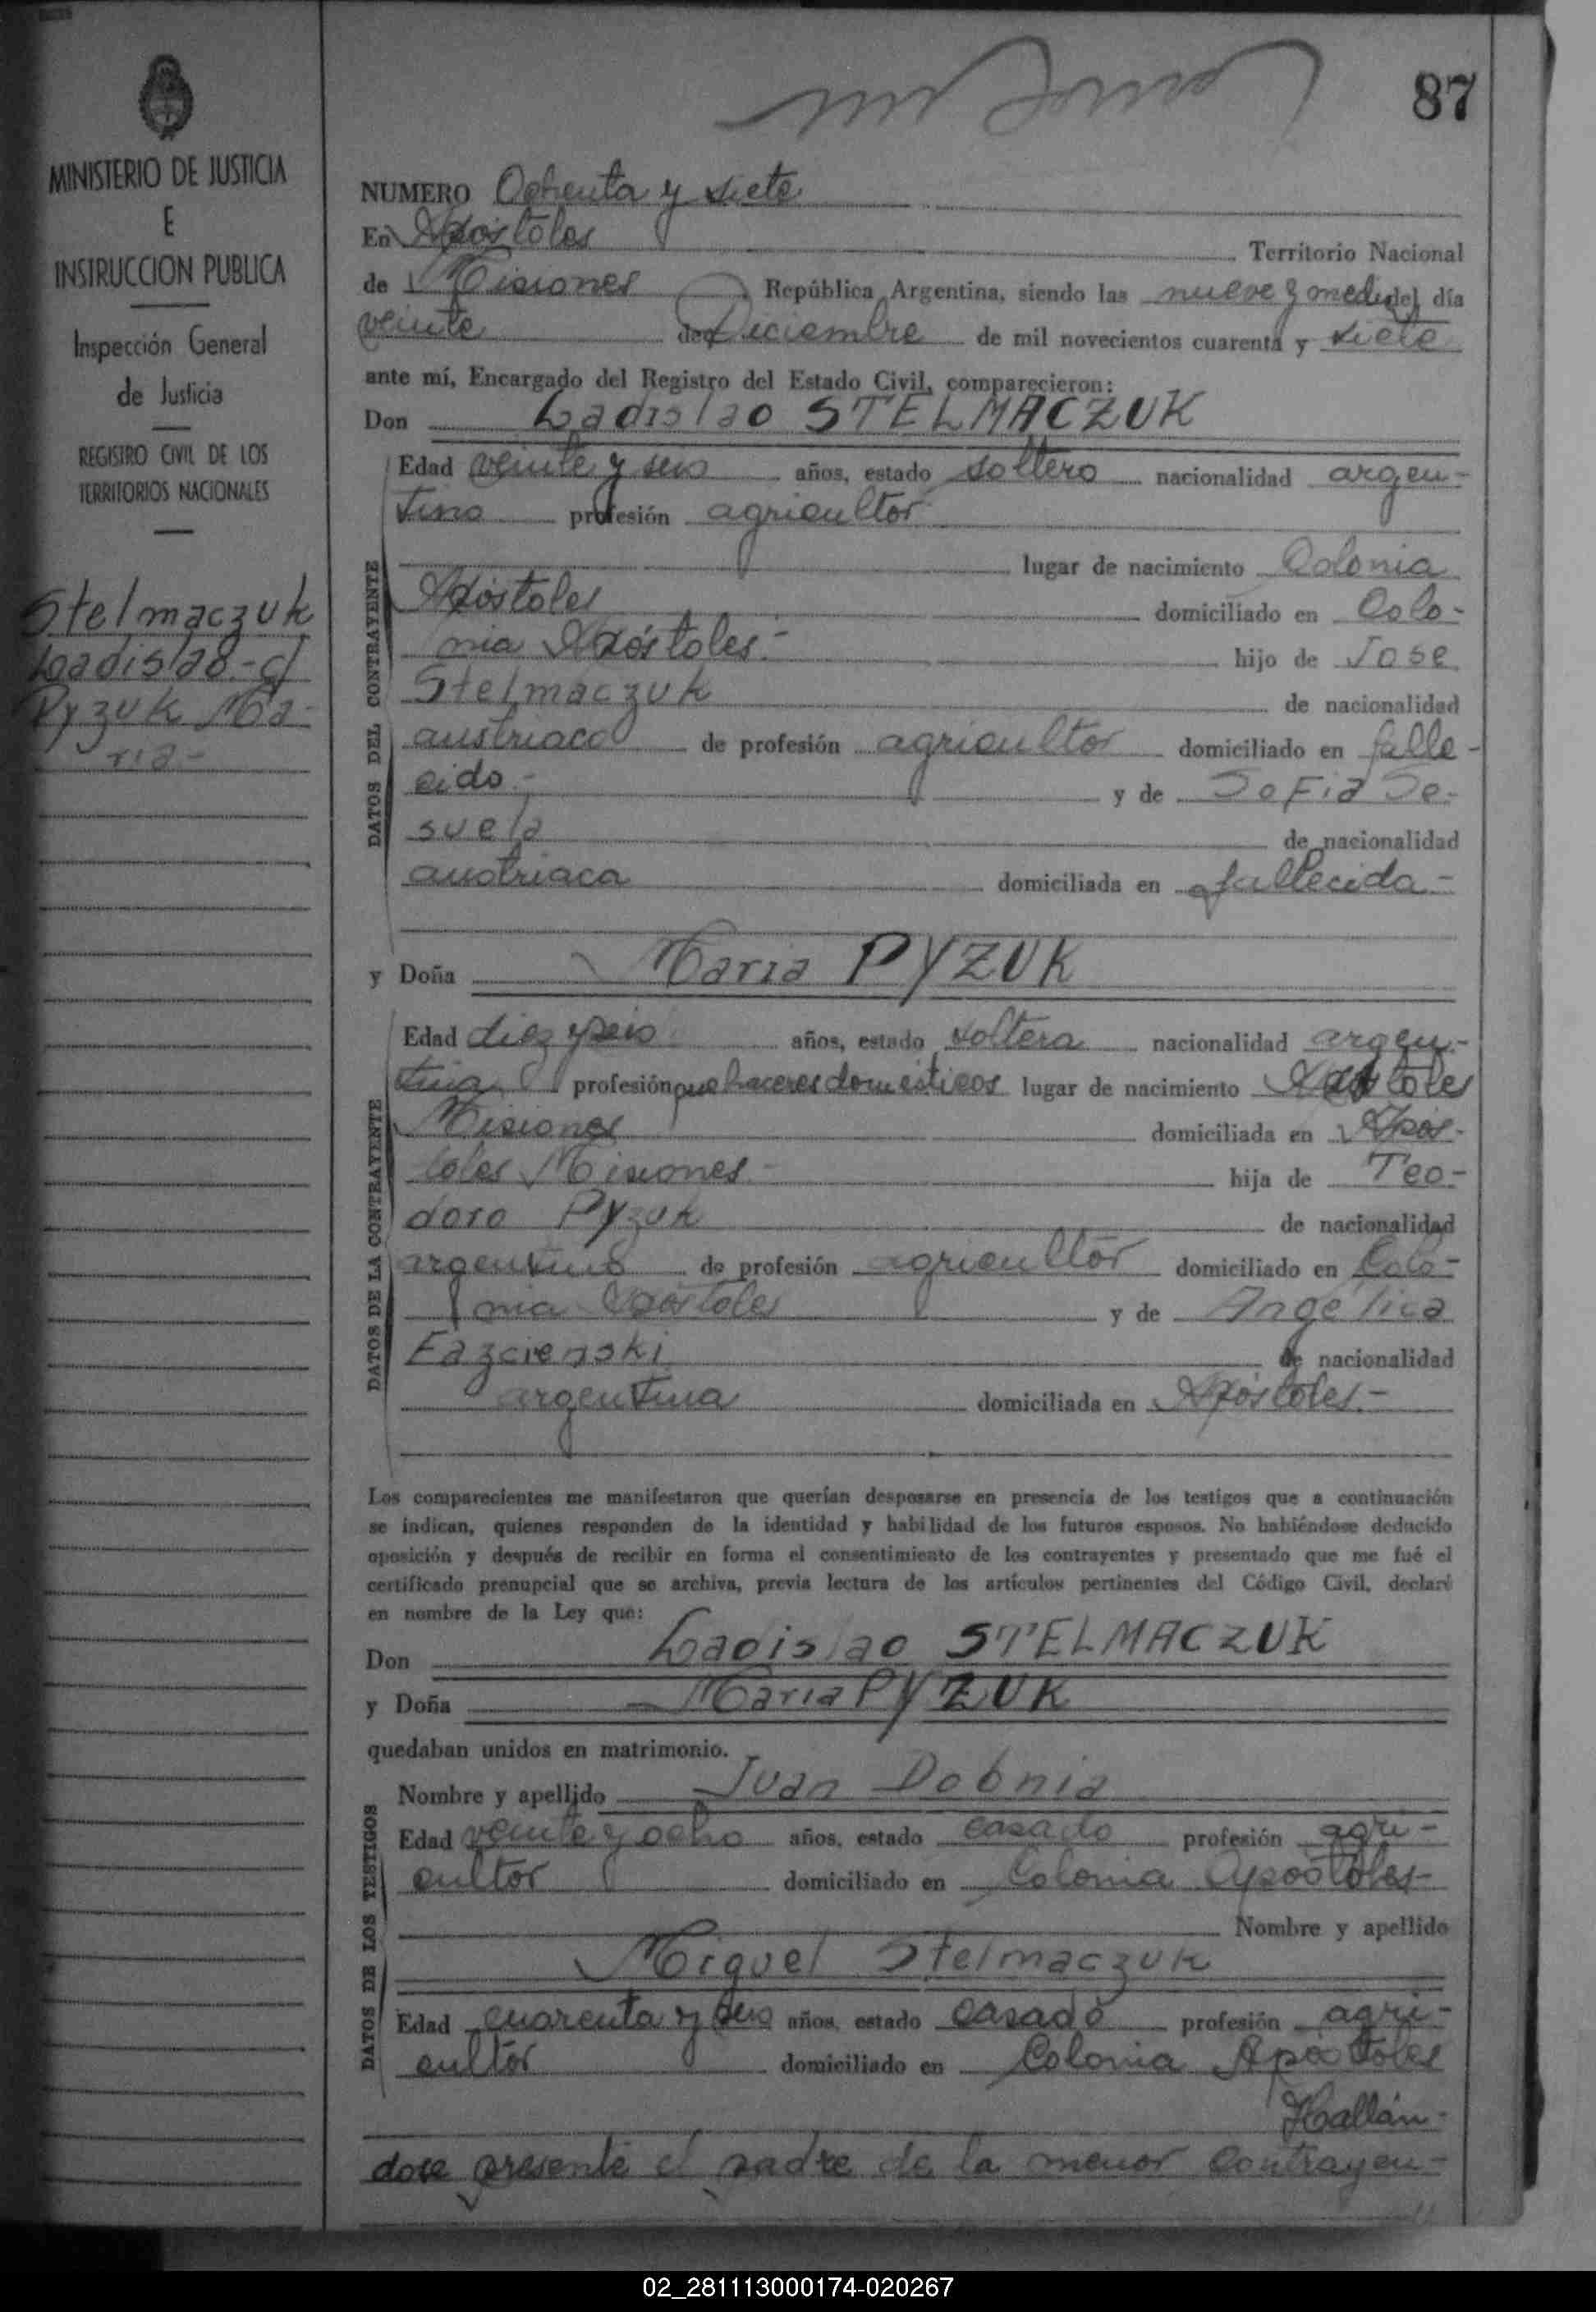 87
MINISTERIO DE JUSTICIA
E
INSTRUCCION PUBLICA
Inspección General
de Justicia
REGISTRO CIVIL DE LOS
TERRITORIOS NACIONALES
Stelmaczuk
Ladislao.- c/
Pyzuk Ma-
ria-
NUMERO Ochenta y siete
En Apóstoles Territorio Nacional
de Misiones República Argentina, siendo las nueve y media del día
veinte de Diciembre de mil novecientos cuarenta y siete
ante mí, Encargado del Registro del Estado Civil, comparecieron:
Don Ladislao STELMACZUK
DATOS DEL CONTRAYENTE
Edad veinte y seis años, estado soltero nacionalidad argen-
tino profesión agricultor
lugar de nacimiento Colonia
Apóstoles domiciliado en Colo-
nia Apóstoles.- hijo de Jose
Stelmaczuk de nacionalidad
austriaco de profesión agricultor domiciliado en falle-
cido.- y de Sofia Se-
suela de nacionalidad
austriaca domiciliada en fallecida.-
y Doña Maria PYZUK
DATOS DE LA CONTRAYENTE
Edad diez y seis años, estado soltera nacionalidad argen-
tina profesión quehaceres domésticos lugar de nacimiento Apóstoles
Misiones domiciliada en Após-
toles Misiones- hija de Teo-
doro Pyzuk de nacionalidad
argentino de profesión agricultor domiciliado en Colo-
nia Apóstoles y de Angélica
Fazcienski de nacionalidad
argentina domiciliada en Apóstoles.-
Los comparecientes me manifestaron que querían desposarse en presencia de los testigos que a continuación
se indican, quienes responden de la identidad y habilidad de los futuros esposos. No habiéndose deducido
oposición y después de recibir en forma el consentimiento de los contrayentes y presentado que me fué el
certificado prenupcial que se archiva, previa lectura de los artículos pertinentes del Código Civil, declaré
en nombre de la Ley que:
Don Ladislao STELMACZUK
y Doña Maria PYZUK
quedaban unidos en matrimonio.
DATOS DE LOS TESTIGOS
Nombre y apellido Juan Dobnia
Edad veinte y ocho años, estado casado profesión agri-
cultor domiciliado en Colonia Apostoles-
Nombre y apellido
Miguel Stelmaczuk
Edad cuarenta y seis años, estado casado profesión agri-
cultor domiciliado en Colonia Apóstoles
Hallán-
dose presente el padre de la menor contrayen-
02_281113000174-020267